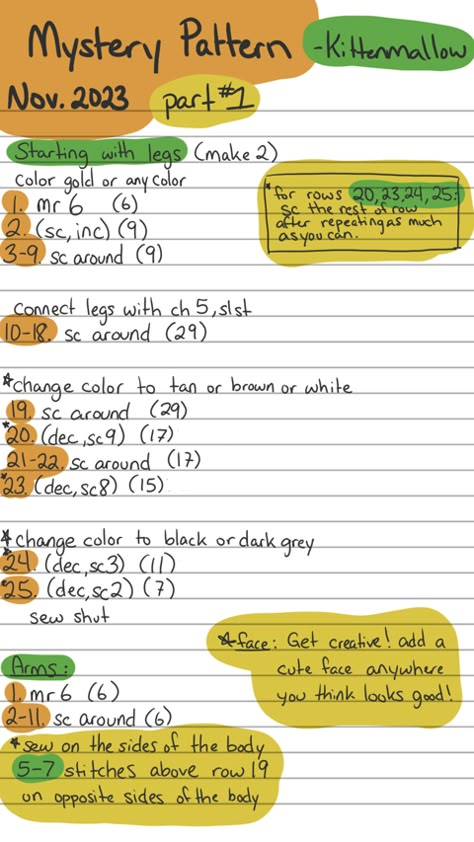 Mystery Pattern -Kittenmallow
Nov. 2023 part #1
Starting with legs (make 2)
Color gold or any color
1. mr 6 (6)
2. (sc, inc) (9)
3-9. sc around (9)
*for rows 20, 23, 24, 25:
sc the rest of row
after repeating as much
as you can.
Connect legs with ch 5, slst
10-18. sc around (29)
*change color to tan or brown or white
19. sc around (29)
*20. (dec, sc9) (17)
21-22. sc around (17)
*23. (dec, sc8) (15)
*change color to black or dark grey
*24. (dec, sc3) (11)
*25. (dec, sc2) (7)
sew shut
*face: Get creative! add a
cute face anywhere
you think looks good!
Arms:
1. mr 6 (6)
2-11. sc around (6)
*sew on the sides of the body
5-7 stitches above row 19
on opposite sides of the body